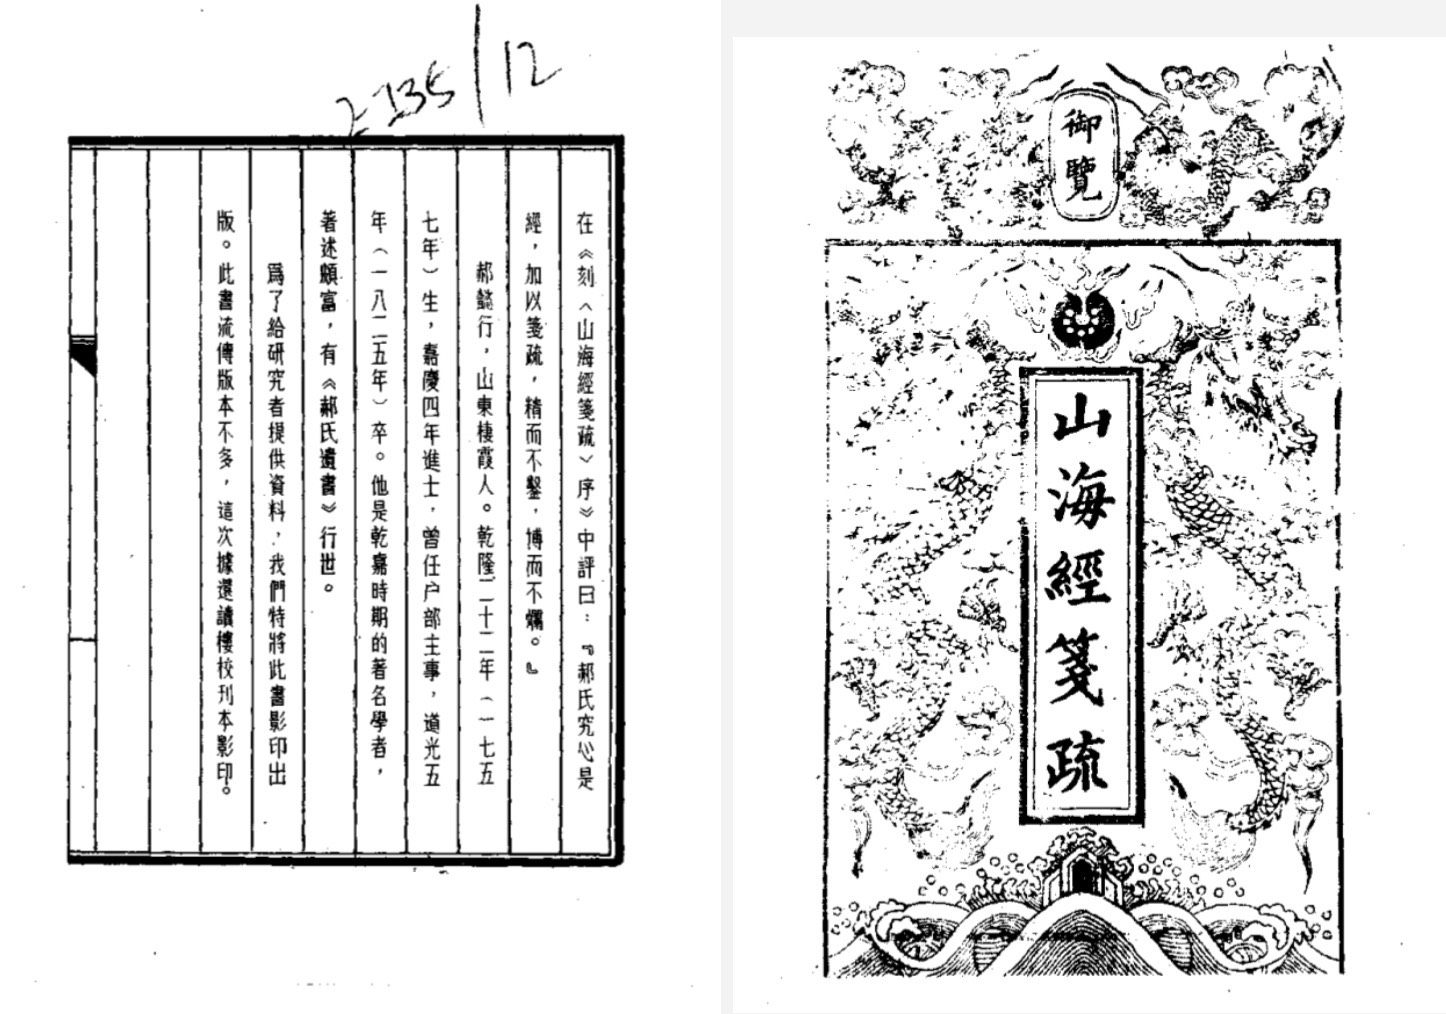 2235/12
在《刻〈山海經箋疏〉序》中評曰：『郝氏究心是
經，加以箋疏，精而不鑿，博而不爛。』
郝懿行，山東棲霞人。乾隆二十二年（一七五
七年）生，嘉慶四年進士，曾任户部主事，道光五
年（一八二五年）卒。他是乾嘉時期的著名學者，
著述頗富，有《郝氏遺書》行世。
爲了給研究者提供資料，我們特將此書影印出
版。此書流傳版本不多，這次據還讀樓校刊本影印。
御覽
山海經箋疏